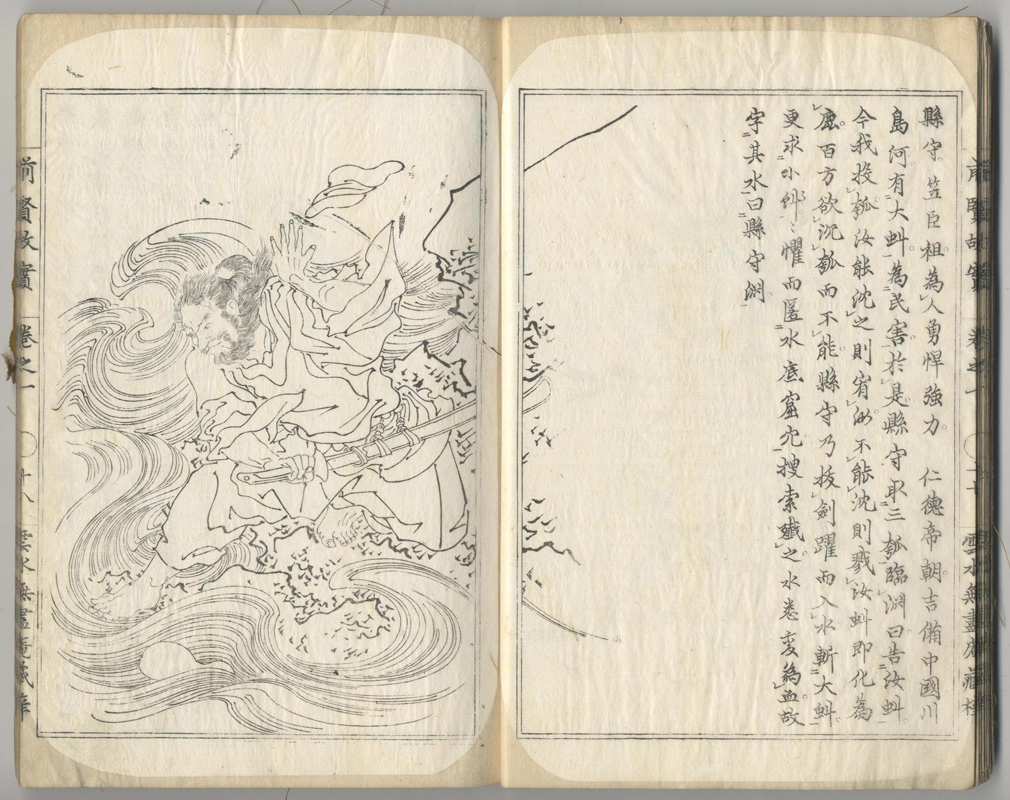 縣守笠臣祖為人勇悍強力 仁德帝朝吉備中國川
島河有大虯為民害於是縣守取三瓠臨淵曰告汝虯
今我投瓠汝能沈之則宥汝不能沈則戮汝虯即化為
鹿百方欲沉瓠而不能縣守乃拔劍躍而入水斬大虯
更求小虯〻懼而匿水底窟穴搜索殲之水悉変為血故
字其水曰縣守淵
前賢故實 卷之一 雲水無盡庵藏梓
前賢故實 卷之一 〇 十八 雲水無盡庵藏梓